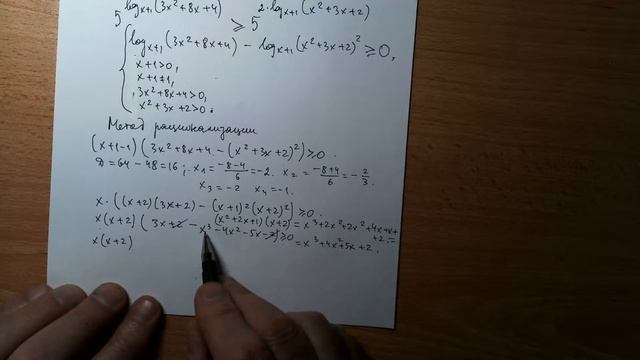 5^(log_{x+1}(3x²+8x+4)) ⩾ 5^(2·log_{x+1}(x²+3x+2))
{ log_{x+1}(3x²+8x+4) − log_{x+1}(x²+3x+2)² ⩾ 0,
x+1>0,
x+1≠1,
3x²+8x+4>0,
x²+3x+2>0.
Метод рационализации
(x+1−1)(3x²+8x+4 − (x²+3x+2)²) ⩾ 0.
D = 64 − 48 = 16; x₁ = (−8−4)/6 = −2. x₂ = (−8+4)/6 = −2/3.
x₃ = −2 x₄ = −1.
x·((x+2)(3x+2) − (x+1)²(x+2)²) ⩾ 0.
(x²+2x+1)(x+2) = x³+2x²+2x²+4x+x+
+2 =
x(x+2)(3x+2 − x³−4x²−5x−2) ⩾ 0
= x³+4x²+5x+2.
x(x+2)